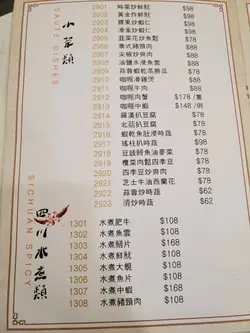 小菜類
SAUTÉ DISHES
2901 時菜炒鮮魷 $98
2902 黃金炸鮮魷 $88
2903 腰果炒蝦仁 $98
2904 滑蛋炒蝦仁 $98
2905 韭菜花炒魚鬆 $78
2906 泰式豬頸肉 $88
2907 尖椒炒爽肉 $78
2908 油鹽水浸魚雲 $88
2909 蒜香蝦乾蒸勝瓜 $78
2910 咖喱滑雞煲 $88
2911 咖喱牛肉 $88
2912 咖喱肉蟹 $182 / 隻
2912 咖喱中蝦 $148 / 例
2914 羅漢扒豆腐 $78
2915 北菇扒豆腐 $78
2916 蝦乾魚肚浸時蔬 $78
2917 瑤柱扒時蔬 $78
2918 豆豉鯪魚油麥菜 $78
2919 欖菜肉鬆四季豆 $78
2920 四季豆炒爽肉 $78
2921 芝士牛油西蘭花 $78
2922 蒜蓉炒時蔬 $62
2923 清炒時蔬 $62
四川水煮類
SICHUAN SPICY
1301 水煮肥牛 $108
1302 水煮魚雲 $108
1303 水煮鱔片 $168
1304 水煮鮮魷 $108
1305 水煮大蜆 $108
1306 水煮魚片 $108
1307 水煮中蝦 $168
1308 水煮豬頸肉 $108